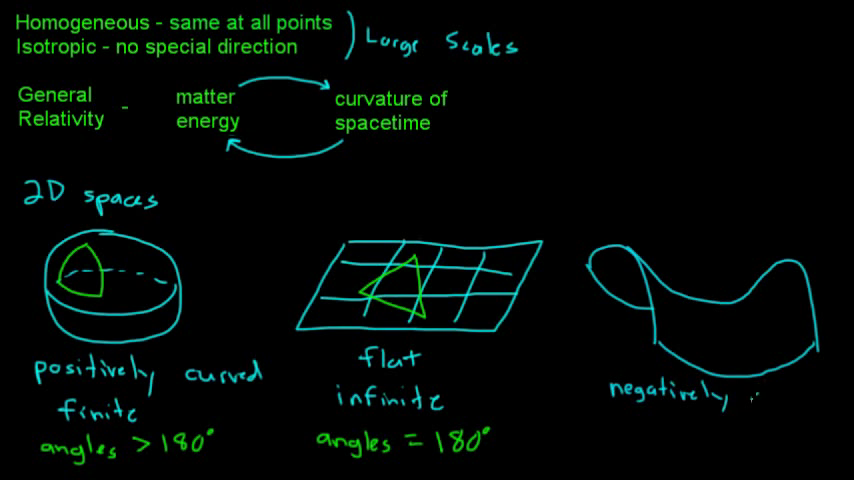 Homogeneous - same at all points
Isotropic - no special direction
Large Scales
General Relativity -
matter energy
curvature of spacetime
2D spaces
positively curved
finite
angles > 180°
flat
infinite
angles = 180°
negatively